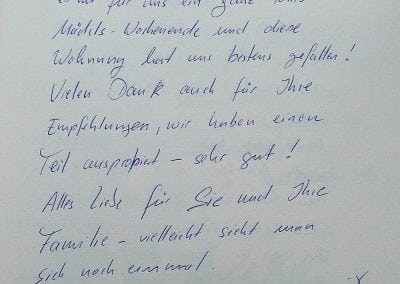 für uns ein ganz
Mädls-Wochenende und diese
Wohnung hat uns bestens gefallen!
Vielen Dank auch für Ihre
Empfehlungen, wir haben einen
Teil ausprobiert – sehr gut!
Alles Liebe für Sie und Ihre
Familie – vielleicht sieht man
sich noch einmal.